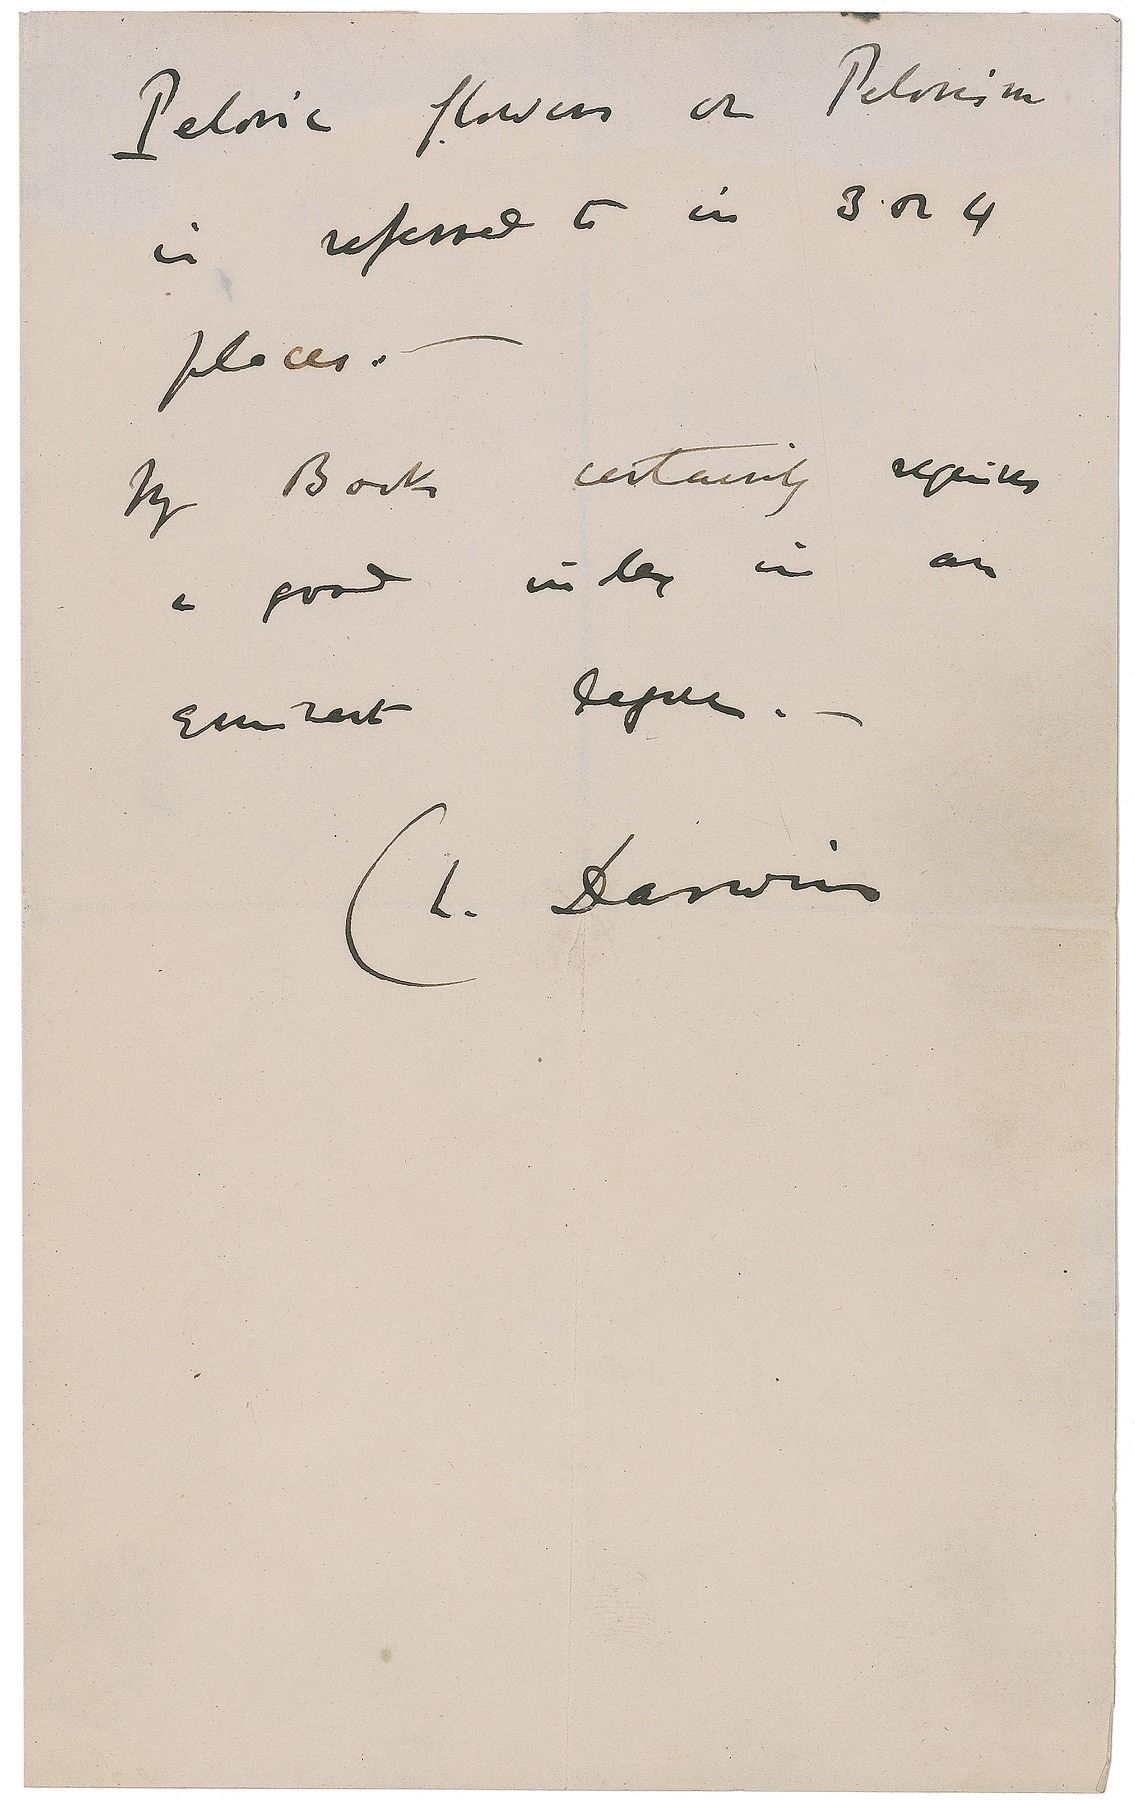 Peloric flowers or Pelorism
is referred to in 3 or 4
places.—
My Book certainly requires
a good index in an
eminent degree.—
Ch. Darwin